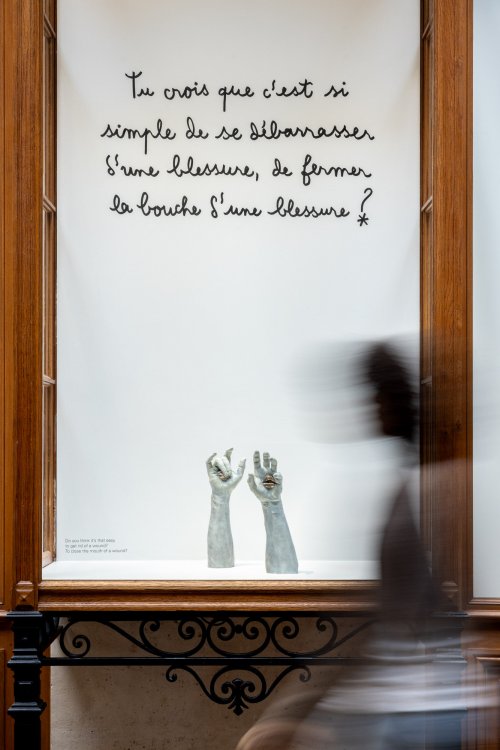 Tu crois que c'est si
simple de se débarrasser
d'une blessure, de fermer
la bouche d'une blessure ?
*
Do you think it's that easy
to get rid of a wound?
To close the mouth of a wound?